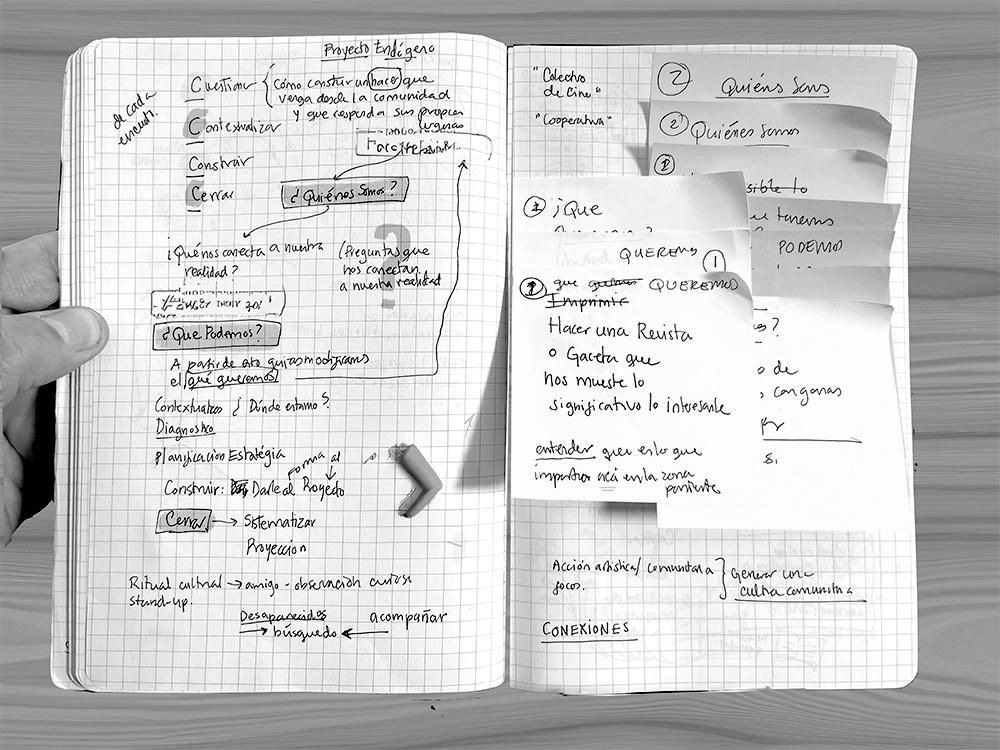 Proyecto Endógeno
de cada
encuent.
Cuestionar { Cómo construir un hacer que
venga desde la comunidad
y que responda sus propias
urgencias
Contextualizar
Construir
Cerrar
¿Quiénes Somos?
¿Qué nos conecta a nuestra
realidad?
(Preguntas que
nos conectan
a nuestra realidad
?
¿Que Podemos?
A partir de esto quizas modificamos
el qué queremos
Contextualizar ¿Dónde estamos?
Diagnostico
Planificacion Estratégia
Construir: Darle al Proyecto
forma al
Cerrar → Sistematizar
Proyección
Ritual cultural → amigo - observación curiosa
stand-up.
Desaparecidos
acompañar
→ búsquedo ←
"Colectivo
de Cine"
"Cooperativa"
2 Quiénes Somos
2 Quiénes Somos
2
sible lo
que tenemos
PODEMOS
1 ¡Que
QUEREMOS 1
1 que QUEREMOS
Imprimir
Hacer una Revista
o Gaceta que
nos muestre lo
significativo lo interesante
entender que es lo que
importa acá en la zona
poniente
?
o de
, con ganas
Acción artistica / comunitaria
focos.
} Generar una
cultura comunitaria
CONEXIONES